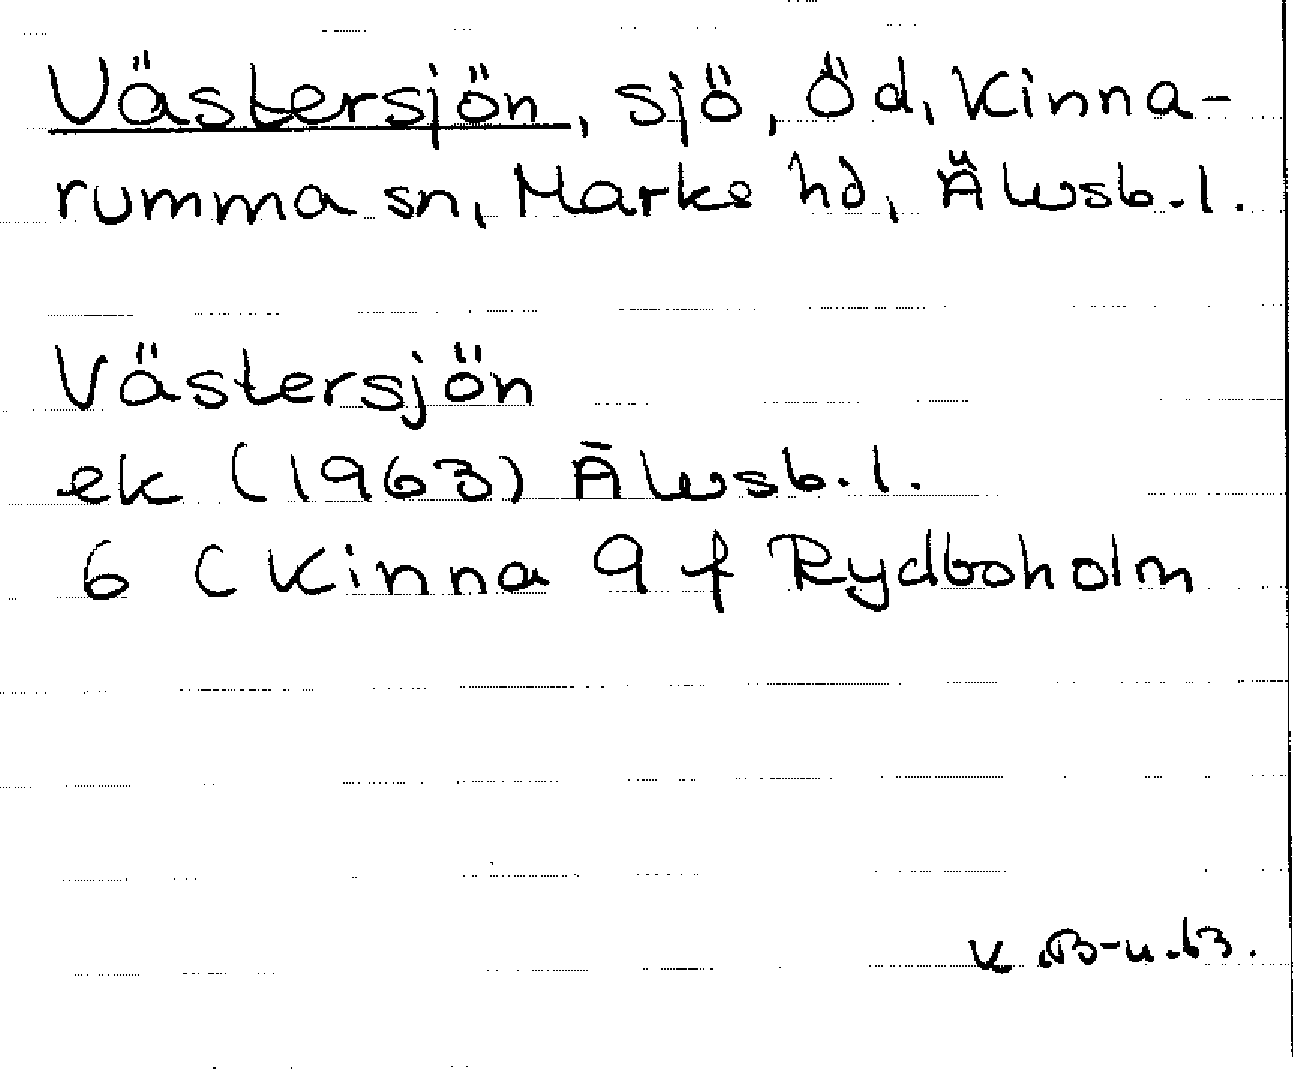 Västersjön, sjö, Öd, Kinna-
rumma sn, Marks hd, Älvsb.l.
Västersjön
ek (1963) Älvsb.l.
6 C Kinna 9 f Rydboholm
K B-u.63.